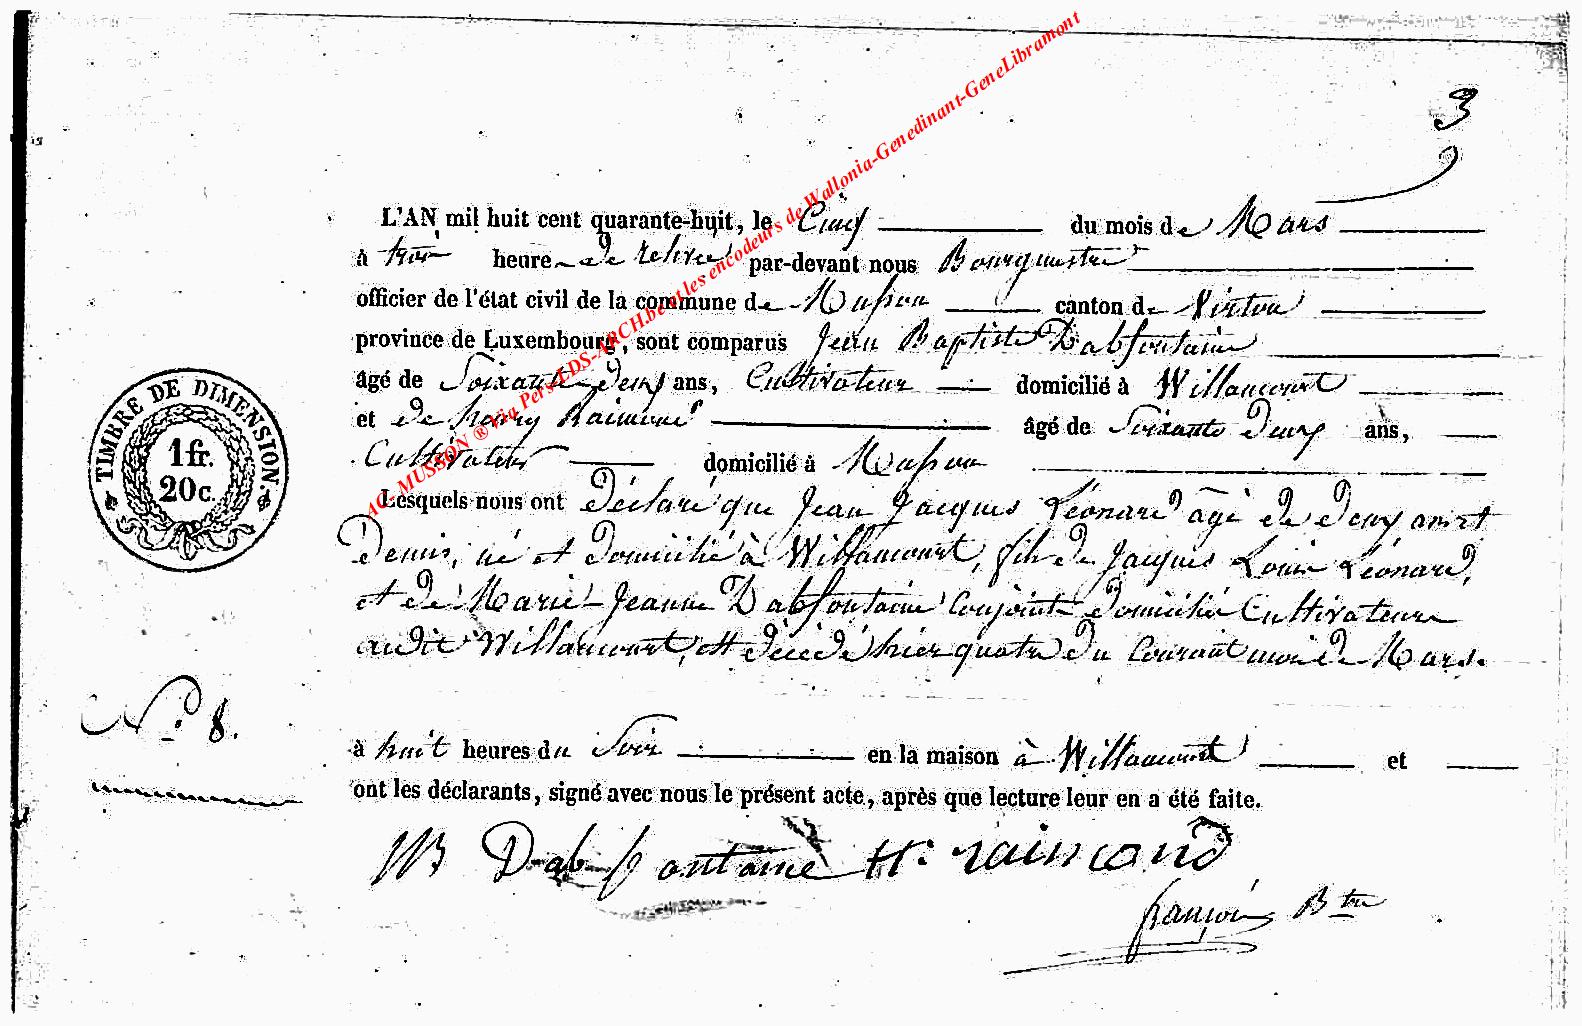 3
L'AN mil huit cent quarante-huit, le Cinq du mois de Mars
à trois heures de relevé par-devant nous Bourgmestre
officier de l'état civil de la commune de Musson canton de Virton
province de Luxembourg, sont comparus Jean Baptiste Dabfontaine
âgé de Soixante Deux ans, Cultivateur domicilié à Willancourt
et de henry Raimond âgé de Soixante Deux ans,
Cultivateur domicilié à Musson
Lesquels nous ont Déclaré que Jean Jacques Léonard âgé de Deux ans et
Demis, né et Domicilié à Willancourt, fils de Jacques Louis Léonard,
et de Marie-Jeanne Dabfontaine Conjoints Domicilié Cultivateurs
audit Willancourt, est décédé hier quatre du Courant mois de Mars.
à huit heures du Soir en la maison à Willancourt et
ont les déclarants, signé avec nous le présent acte, après que lecture leur en a été faite.
JB Dabfontaine H. raimond
françois Btre
TIMBRE DE DIMENSION.
1 fr.
20 c.
N° 8.
AC-MUSSON ® Via Pers-LDS-ARCH.be et les encodeurs de Wallonia-Genedinant-GeneLibramont